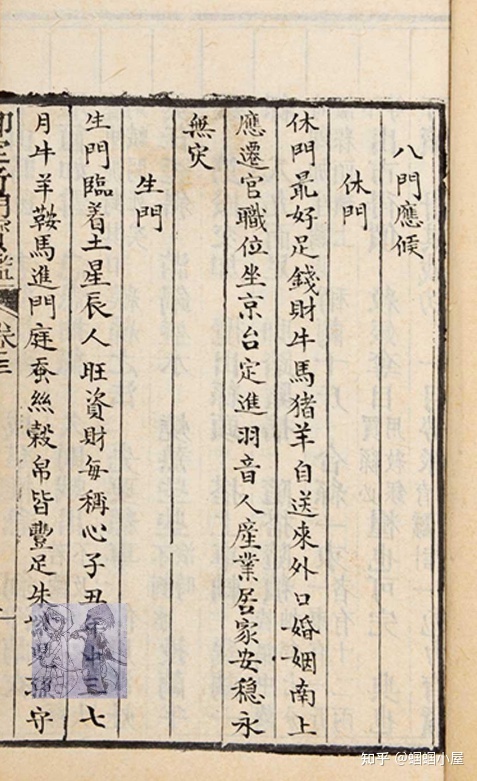 八門應候
休門
休門最好足錢財牛馬猪羊自送來外口婚姻南上
應遷官職位坐京台定進羽音人産業居家安穩永
無灾
生門
生門臨着土星辰人旺資財每稱心子丑年中三七
月牛羊鞍馬進門庭蚕絲榖帛皆豐足朱守
卷三
知乎 @蝈蝈小屋